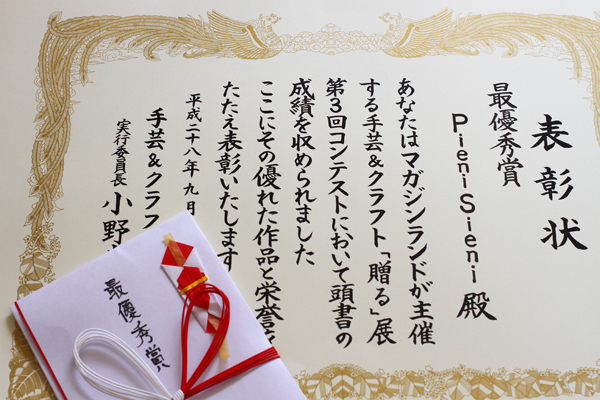 表彰状
最優秀賞
PieniSieni 殿
あなたはマガジンランドが主催
する手芸&クラフト「贈る」展
第3回コンテストにおいて頭書の
成績を収められました
ここにその優れた作品と栄誉を
たたえ表彰いたします
平成二十八年九月
手芸&クラフ
実行委員長 小野
最優秀賞